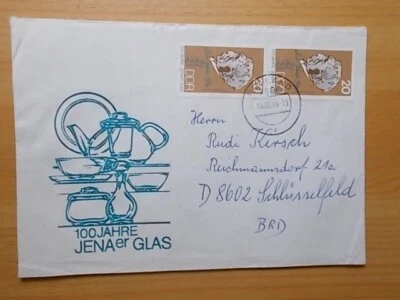 DDR 20
DDR 20
Herrn
Rudi Kirsch
Reichmannsdorf 21a
D 8602 Schlüsselfeld
BRD
100 JAHRE
JENAer GLAS